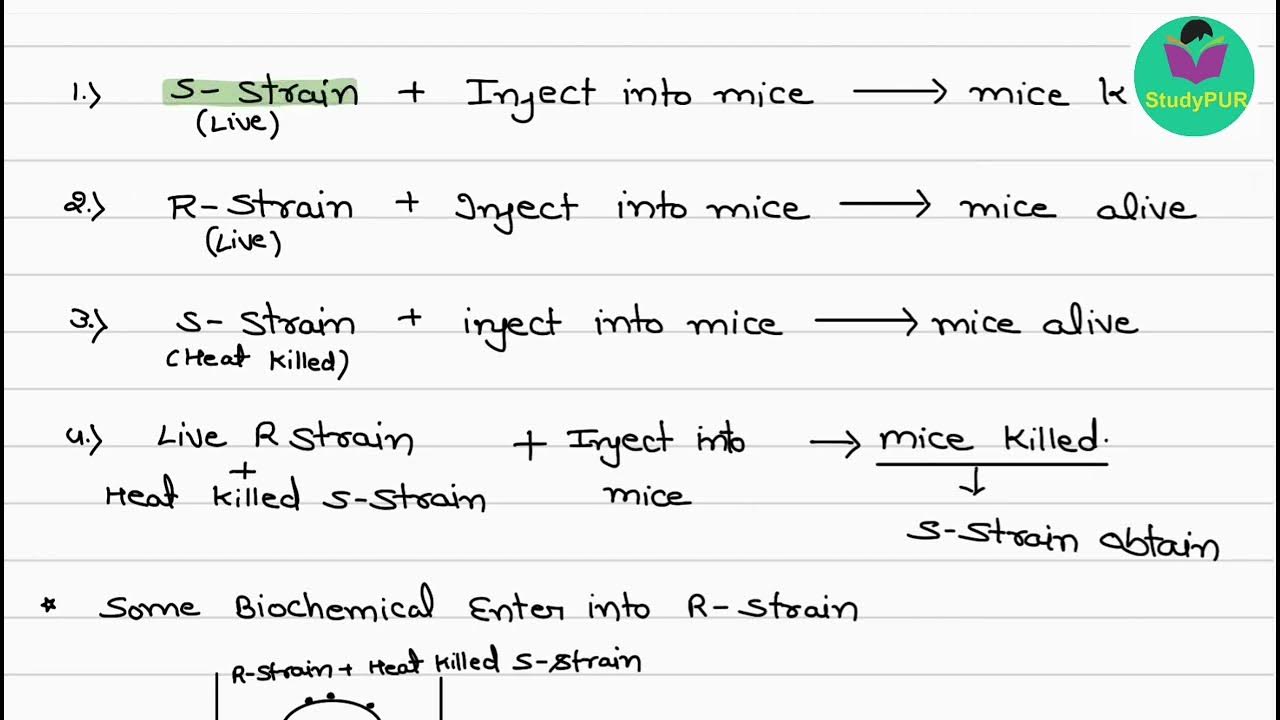 1.) S- Strain + Inject into mice → mice k
(Live)
StudyPUR
2.) R- Strain + Inject into mice → mice alive
(Live)
3.) S- Strain + inject into mice → mice alive
(Heat killed)
4.) Live R Strain + Inject into → mice killed.
+
Heat killed S-Strain mice
↓
S-Strain obtain
* Some Biochemical Enter into R- Strain
R-Strain + Heat killed S-Strain